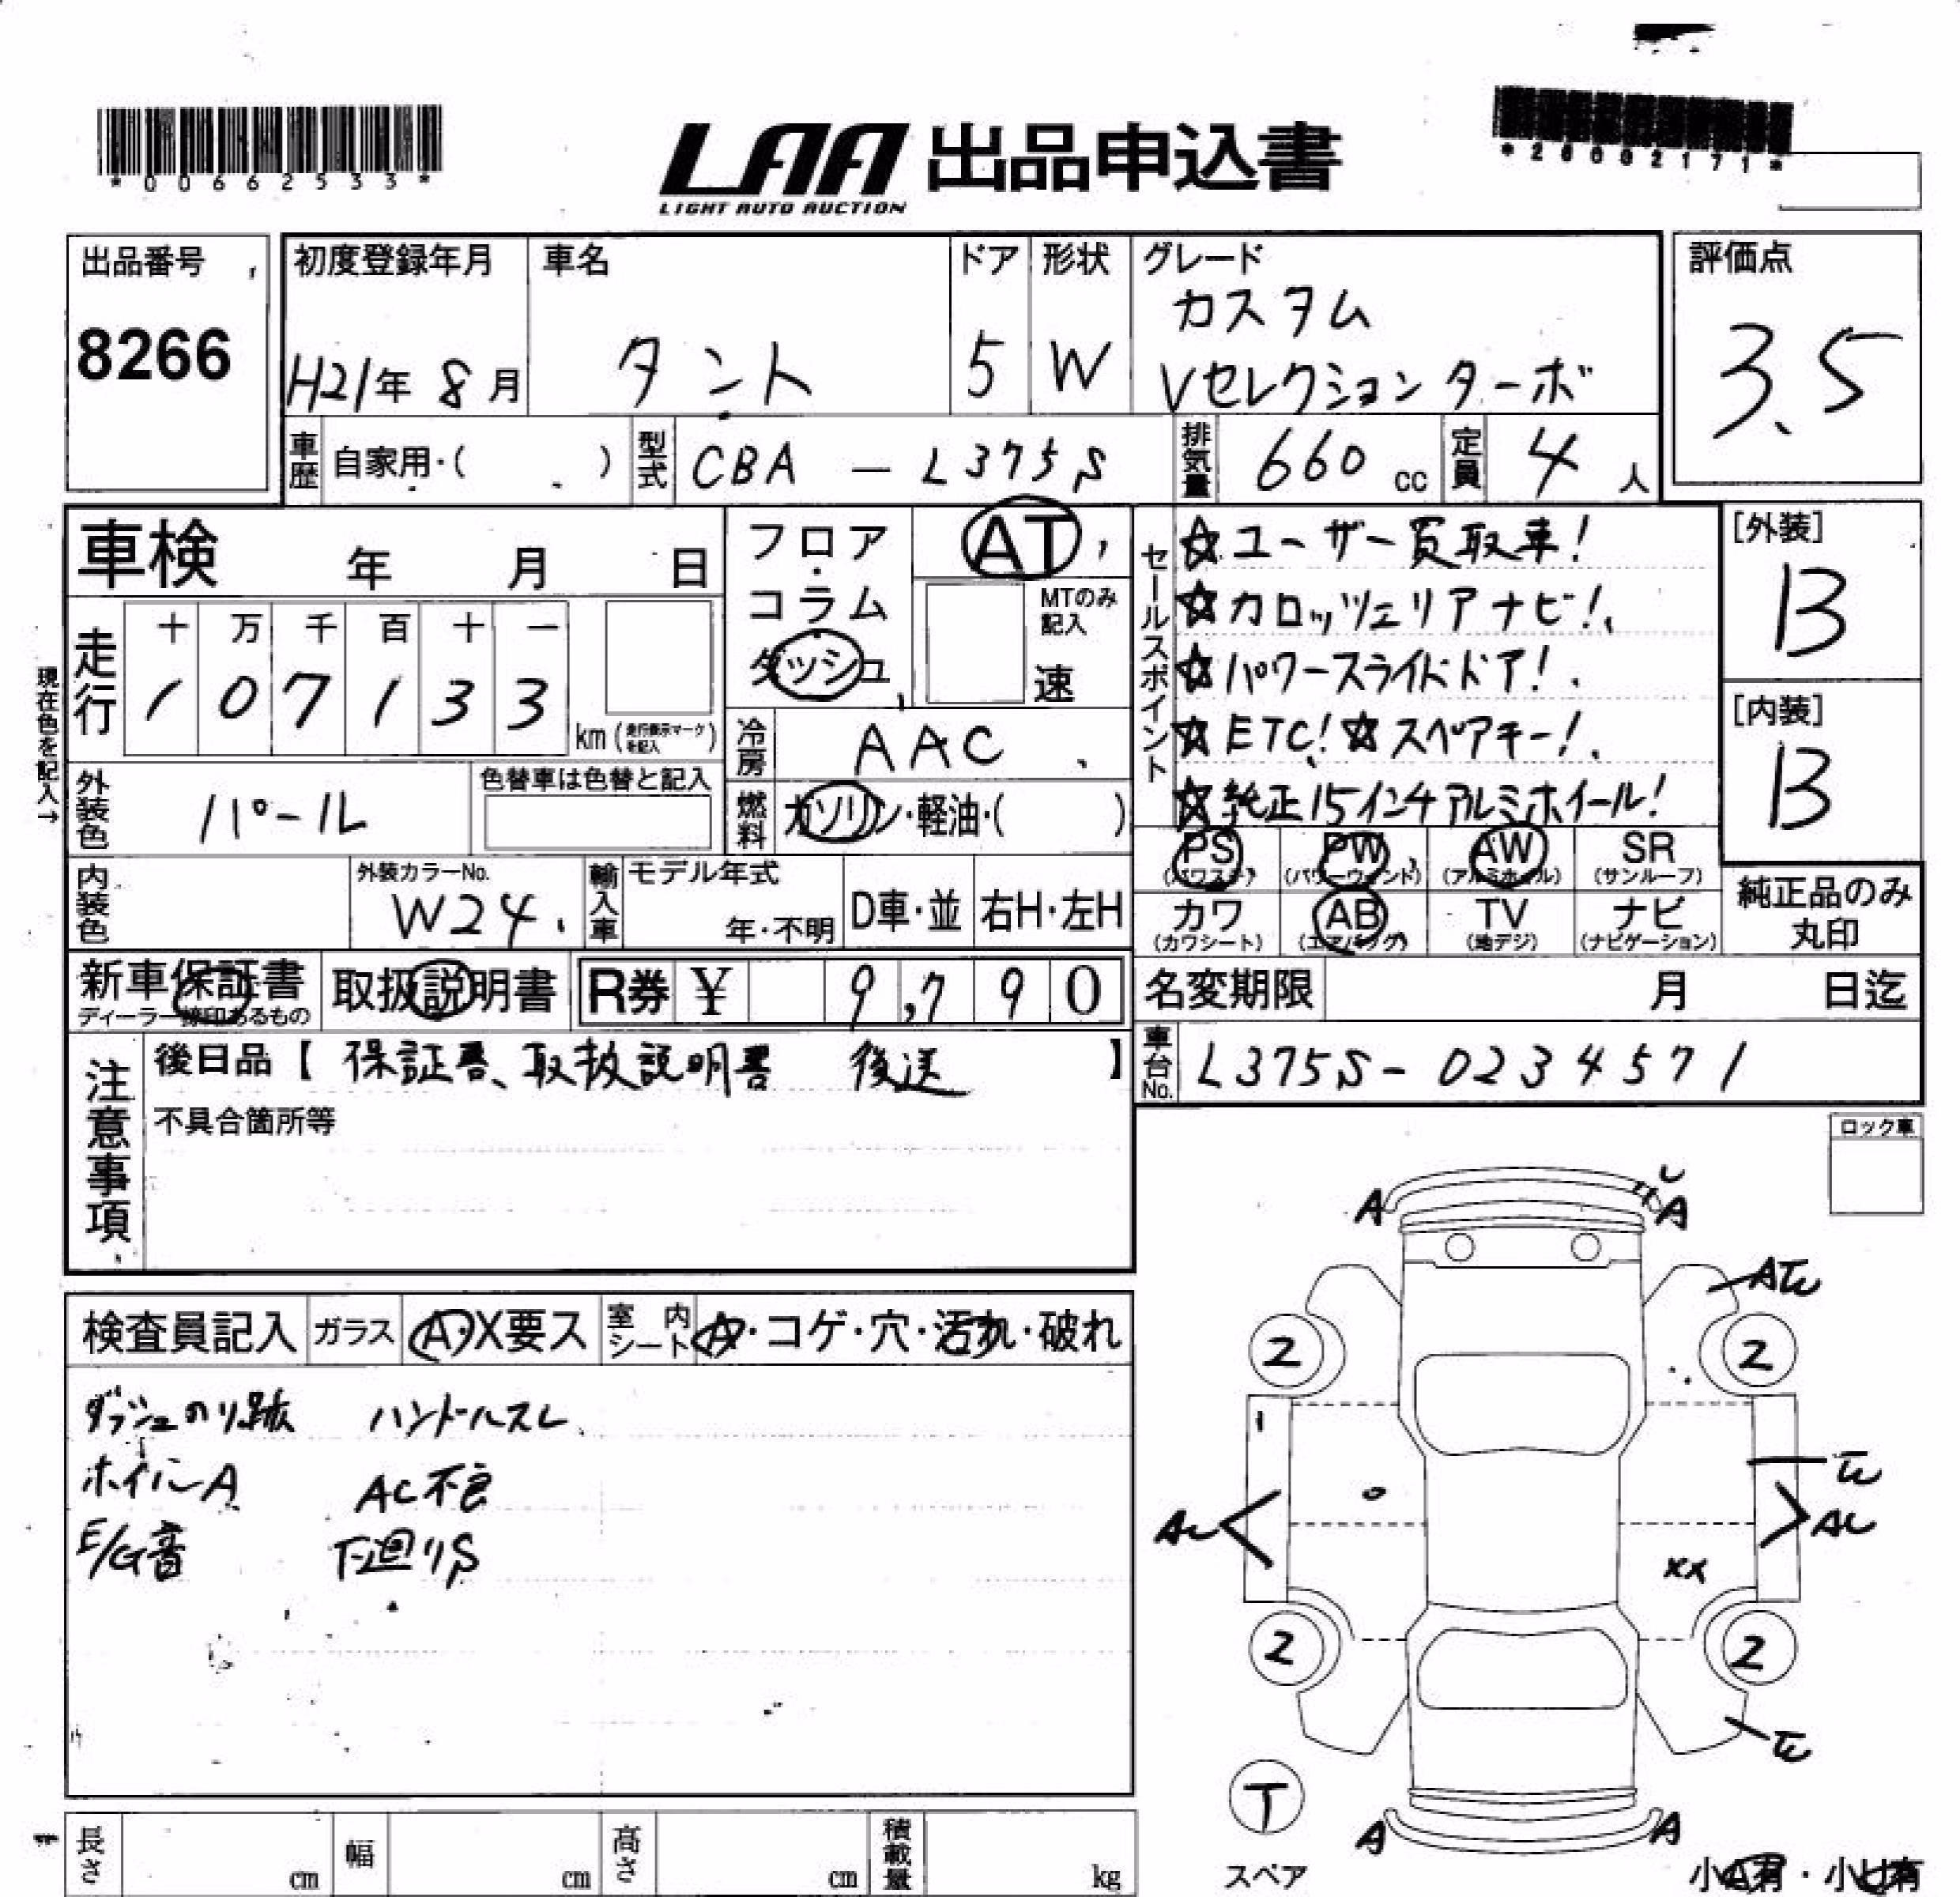 *00662533*
LAA 出品申込書
LIGHT AUTO AUCTION
*26002171*
出品番号
8266
初度登録年月
H21年 8月
車名
タント
ドア
5
形状
W
グレード
カスタム
Vセレクションターボ
評価点
3.5
車歴
自家用・( )
型式
CBA - L375S
排気量
660 cc
定員
4 人
車検 年 月 日
フロア・コラム
ダッシュ
AT
MTのみ記入
速
セールスポイント
☆ユーザー買取車!
☆カロッツェリアナビ!
☆パワースライドドア!
☆ETC!☆スペアキー!
☆純正15インチアルミホイール!
[外装]
B
[内装]
B
現在色を記入→
走行
十 万 千 百 十 一
1 0 7 1 3 3
km(走行表示マークを記入)
冷房
AAC
燃料
ガソリン・軽油・( )
外装色
パール
色替車は色替と記入
PS
(パワステ)
PW
(パワーウィンド)
AW
(アルミホイル)
SR
(サンルーフ)
カワ
(カワシート)
AB
(エアバッグ)
TV
(地デジ)
ナビ
(ナビゲーション)
純正品のみ
丸印
内装色
外装カラーNo.
W24
輸入車
モデル年式
年・不明
D車・並
右H・左H
新車保証書
ディーラー捺印あるもの
取扱説明書
R券 ¥ 9,790
名変期限 月 日迄
注意事項
後日品【 保証書、取扱説明書 後送 】
不具合箇所等
車台No.
L375S-0234571
ロック車
検査員記入
ガラス
A・X要ス
室内シート
A・コゲ・穴・汚れ・破れ
ダッシュのリ跡 ハンドルスレ
ホイールA AC不良
E/G音 下廻りS
A
A
2
2
AU
AU
XX
2
2
T
スペア
A
A
小A有・小U有
長さ cm
幅 cm
高さ cm
積載量 kg